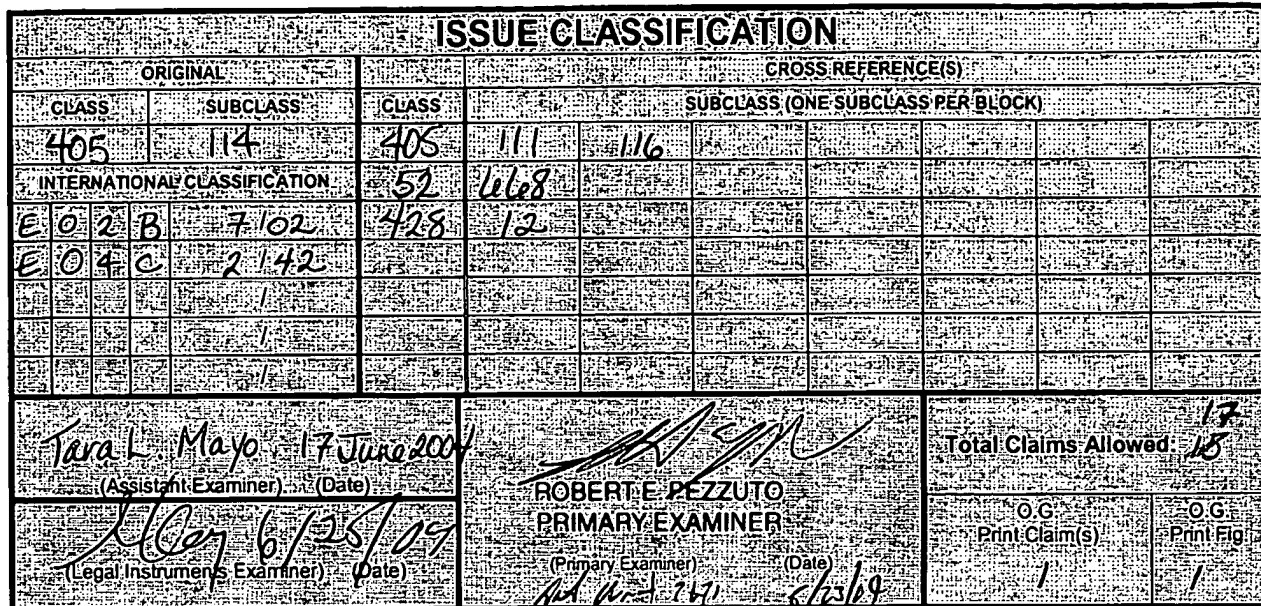 ISSUE CLASSIFICATION
ORIGINAL CROSS REFERENCE(S)
CLASS SUBCLASS CLASS SUBCLASS (ONE SUBCLASS PER BLOCK)
405 114 405 111 116
INTERNATIONAL CLASSIFICATION 52 668
E 0 2 B 7/02 428 12
E 0 4 C 2/42
/
/
/
Tara L. Mayo 17 June 2004
(Assistant Examiner) (Date)
6/25/04
(Legal Instruments Examiner) (Date)
ROBERT E. PEZZUTO
PRIMARY EXAMINER
(Primary Examiner) (Date)
Art Unit 3671 6/23/04
17
Total Claims Allowed: 18
O.G. Print Claim(s)
1
O.G. Print Fig.
1